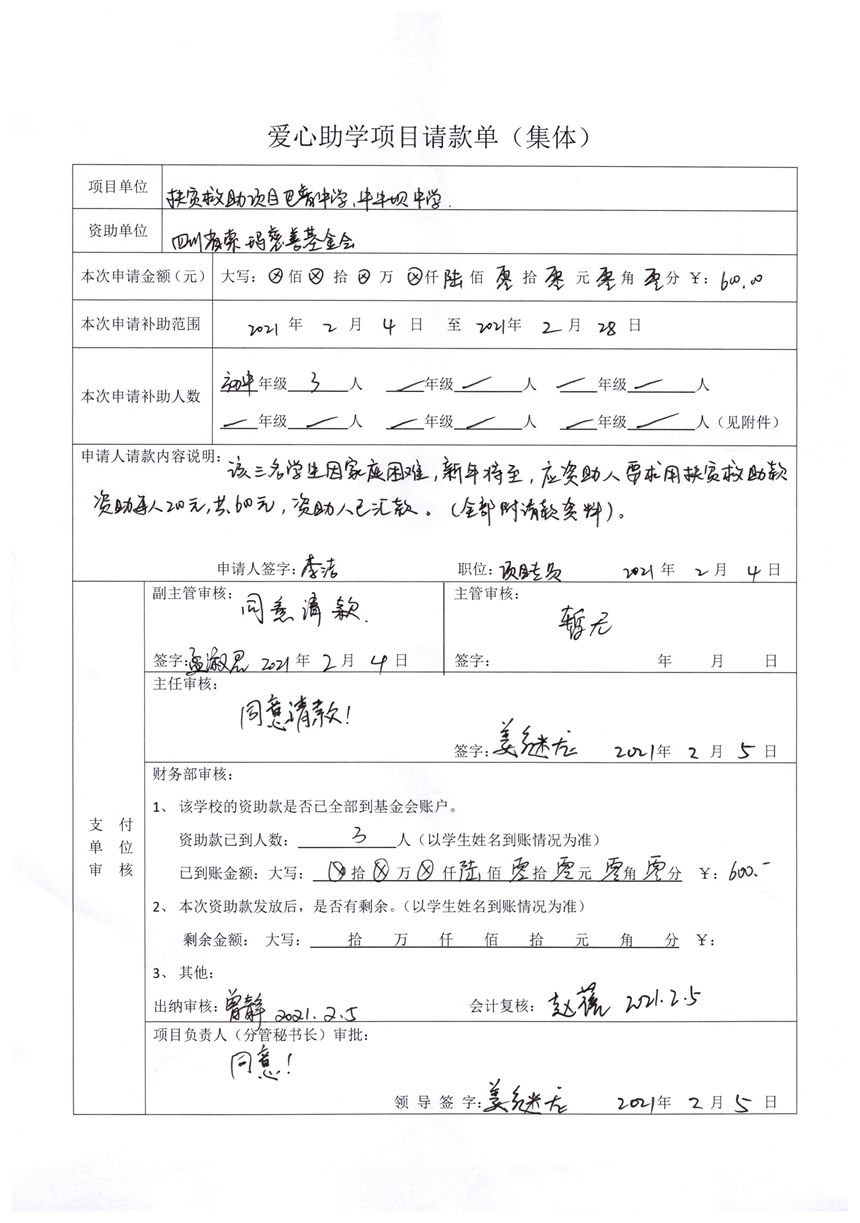 爱心助学项目请款单（集体）
项目单位 扶贫救助项目巴青中学、中牛坝中学.
资助单位 四川省索玛慈善基金会
本次申请金额（元） 大写：ⓧ佰ⓧ拾ⓧ万ⓧ仟陆佰零拾零元零角零分 ¥：600.00
本次申请补助范围 2021年2月4日 至 2021年2月28日
本次申请补助人数 初中年级 3 人 ／年级 ／ 人 ／年级 ／ 人
／年级 ／ 人 ／年级 ／ 人 ／年级 ／ 人（见附件）
申请人请款内容说明：该三名学生因家庭困难，新年将至，应资助人要求用扶贫救助款
资助每人20元，共60元，资助人已汇款。（全部附请款资料）。
申请人签字：李洁 职位：项目专员 2021年2月4日
支付单位审核
副主管审核：同意请款. 主管审核：暂无
签字：孟淑君 2021年2月4日 签字： 年 月 日
主任审核：
同意请款！
签字：姜继龙 2021年2月5日
财务部审核：
1、 该学校的资助款是否已全部到基金会账户。
资助款已到人数： 3 人（以学生姓名到账情况为准）
已到账金额：大写：ⓧ拾ⓧ万ⓧ仟陆佰零拾零元零角零分 ¥：600.-
2、 本次资助款发放后，是否有剩余。（以学生姓名到账情况为准）
剩余金额： 大写： 拾 万 仟 佰 拾 元 角 分 ¥：
3、 其他：
出纳审核：曾静 2021.2.5 会计复核：赵蓓 2021.2.5
项目负责人（分管秘书长）审批：
同意！
领导签字：姜继龙 2021年2月5日